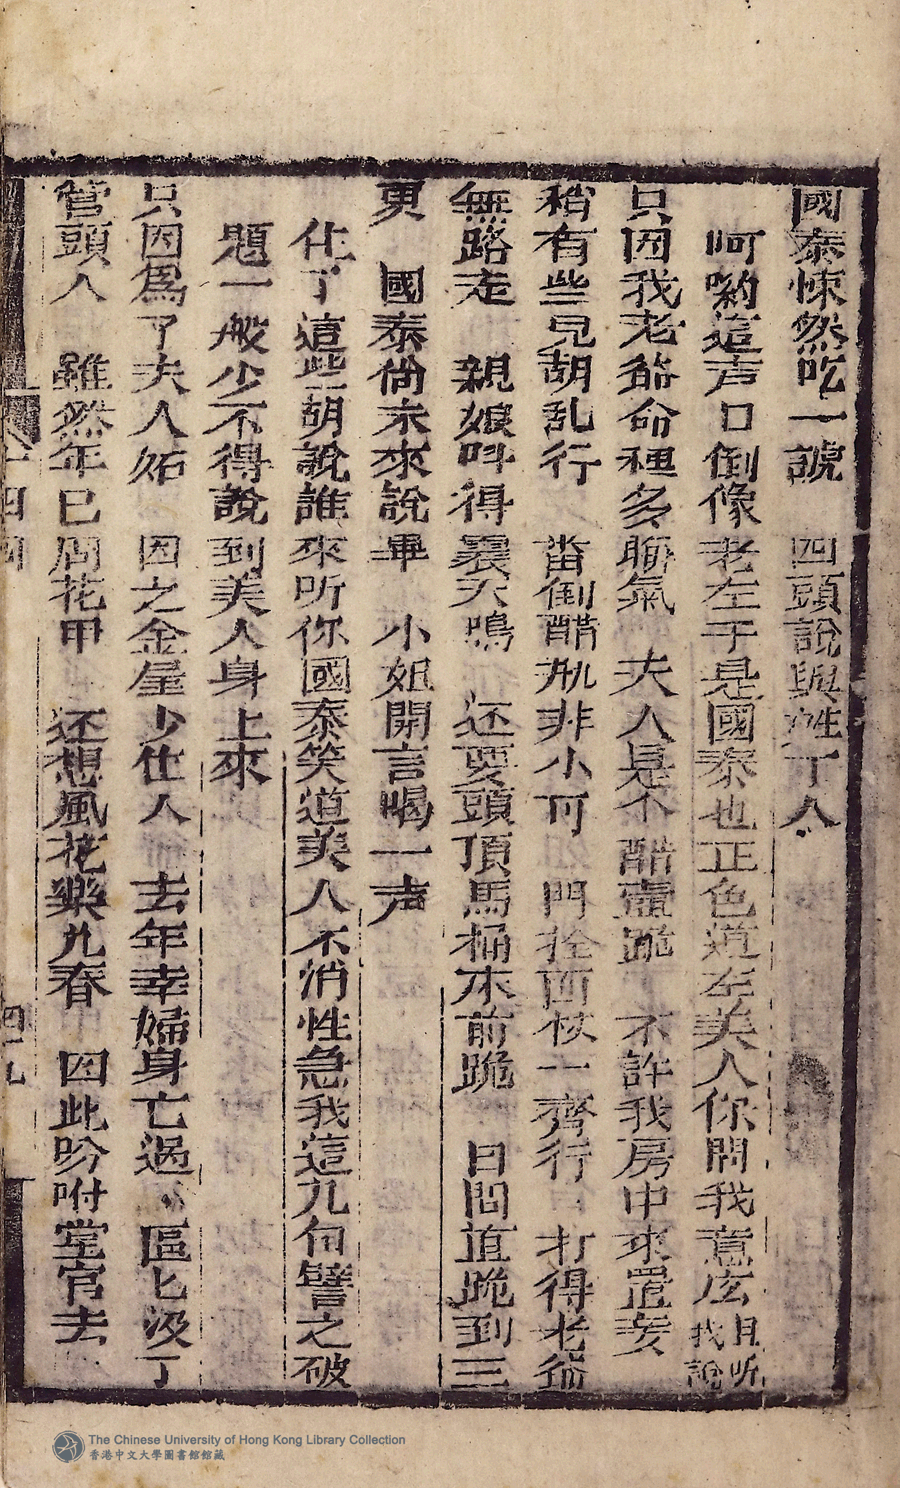 國泰悚然吃一諕　四頭說與姓丁人
呵喲這声口倒像老左于是國泰也正色道左美人你問我意広且听我說
只因我老爺命裡多聊氣　夫人是个醋壷跪　不許我房中來置妾
稍有些兒胡乱行　畨倒醋瓶非小可　門拴面杖一齊行　打得老爺
無路走　親娘呌得㬥天鳴　还要頭頂馬桶床前跪　日間直跪到三
更　國泰倘未來說畢　小姐開言喝一声
化了這些胡說誰來听你國泰笑道美人不消性急我這几句譬之破
題一般少不得說到美人身上來
只因爲了夫人妬　因之金屋少仕人　去年幸婦身亡過　區匕汲丁
管頭人　雖然年已周花甲　还想風花樂九春　因此吩咐堂官去
四九
The Chinese University of Hong Kong Library Collection
香港中文大學圖書館館藏